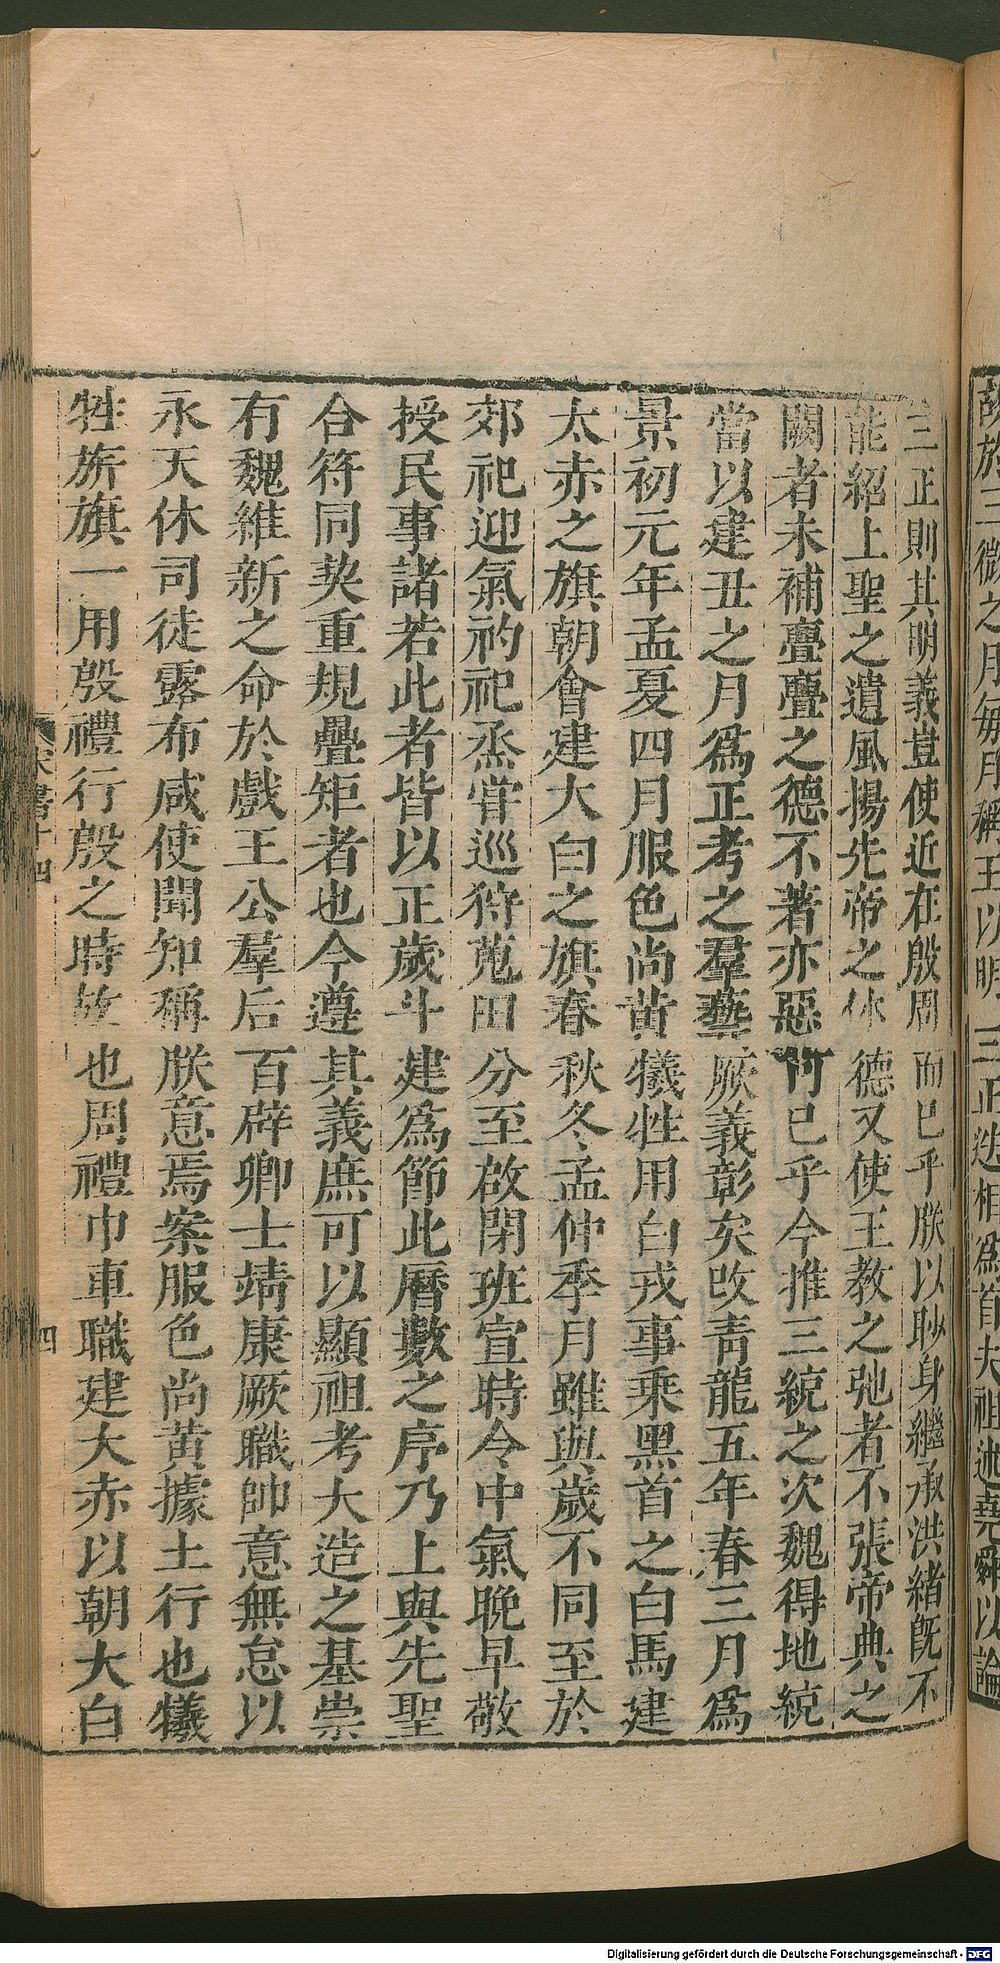 故於三微之月每月稱王以明三正迭相爲首夫祖述堯舜以論
三正則其明義豈使近在殷周而已乎朕以眇身繼承洪緒旣不
能紹上聖之遺風揚先帝之休德又使王教之弛者不張帝典之
闕者未補亹亹之德不著亦惡可已乎今推三統之次魏得地統
當以建丑之月爲正考之羣藝厥義彰矣攺青龍五年春三月爲
景初元年孟夏四月服色尚黃犧牲用白戎事乘黑首之白馬建
太赤之旗朝會建大白之旗春秋冬孟仲季月雖與歲不同至於
郊祀迎氣礿祀烝嘗巡狩蒐田分至啟閉班宣時令中氣晚早敬
授民事諸若此者皆以正歲斗建爲節此曆數之序乃上與先聖
合符同契重規疊矩者也今遵其義庶可以顯祖考大造之基崇
有魏維新之命於戲王公羣后百辟卿士靖康厥職帥意無怠以
永天休司徒露布咸使聞知稱朕意焉案服色尚黃據土行也犧
牲旂旗一用殷禮行殷之時故也周禮巾車職建大赤以朝大白
宋書十四
四
Digitalisierung gefördert durch die Deutsche Forschungsgemeinschaft - DFG